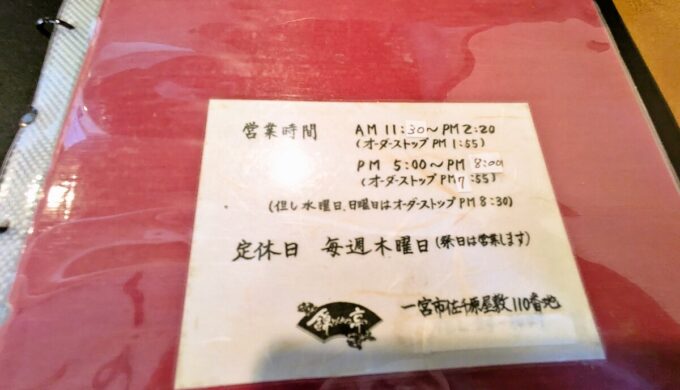 営業時間 AM 11:30～PM 2:20
(オーダーストップ PM 1:55)
PM 5:00～PM 8:00
(オーダーストップ PM 7:55)
(但し水曜日、日曜日はオーダーストップ PM 8:30)
定休日 毎週木曜日(祭日は営業します)
一宮市佐千原屋敷110番地